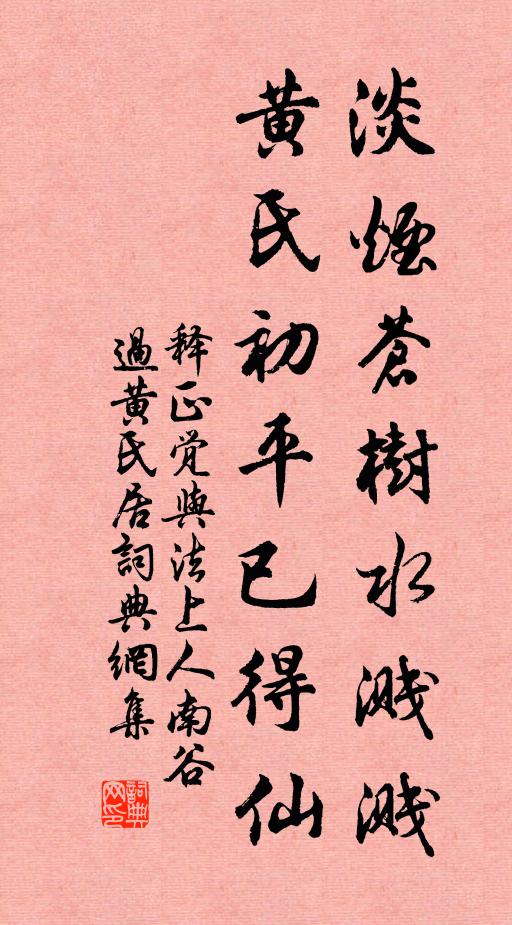 淡煙蒼樹水濺濺
黃氏初平已得仙
释正觉與法上人南谷
過黃氏居詞典網集
詞典网印